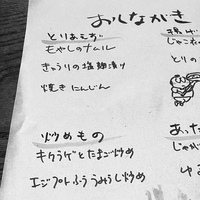 おしながき
とりあえず
もやしのナムル
きゅうりの塩麹漬け
焼きにんじん
炒めもの
キクラゲとたまご炒め
エジプトふううみうし炒め
揚げ
じゃこ
とりの
あった
じゃが
ゆ